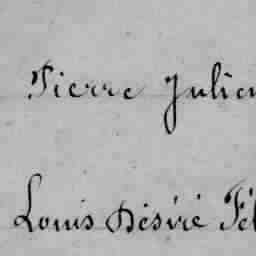 Pierre Julien
Louis Désiré Fél